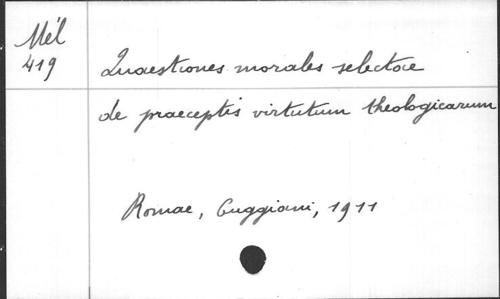 Mél
419
Quaestiones morales selectae
de praeceptis virtutum theologicarum
Romae, Cuggiani, 1911